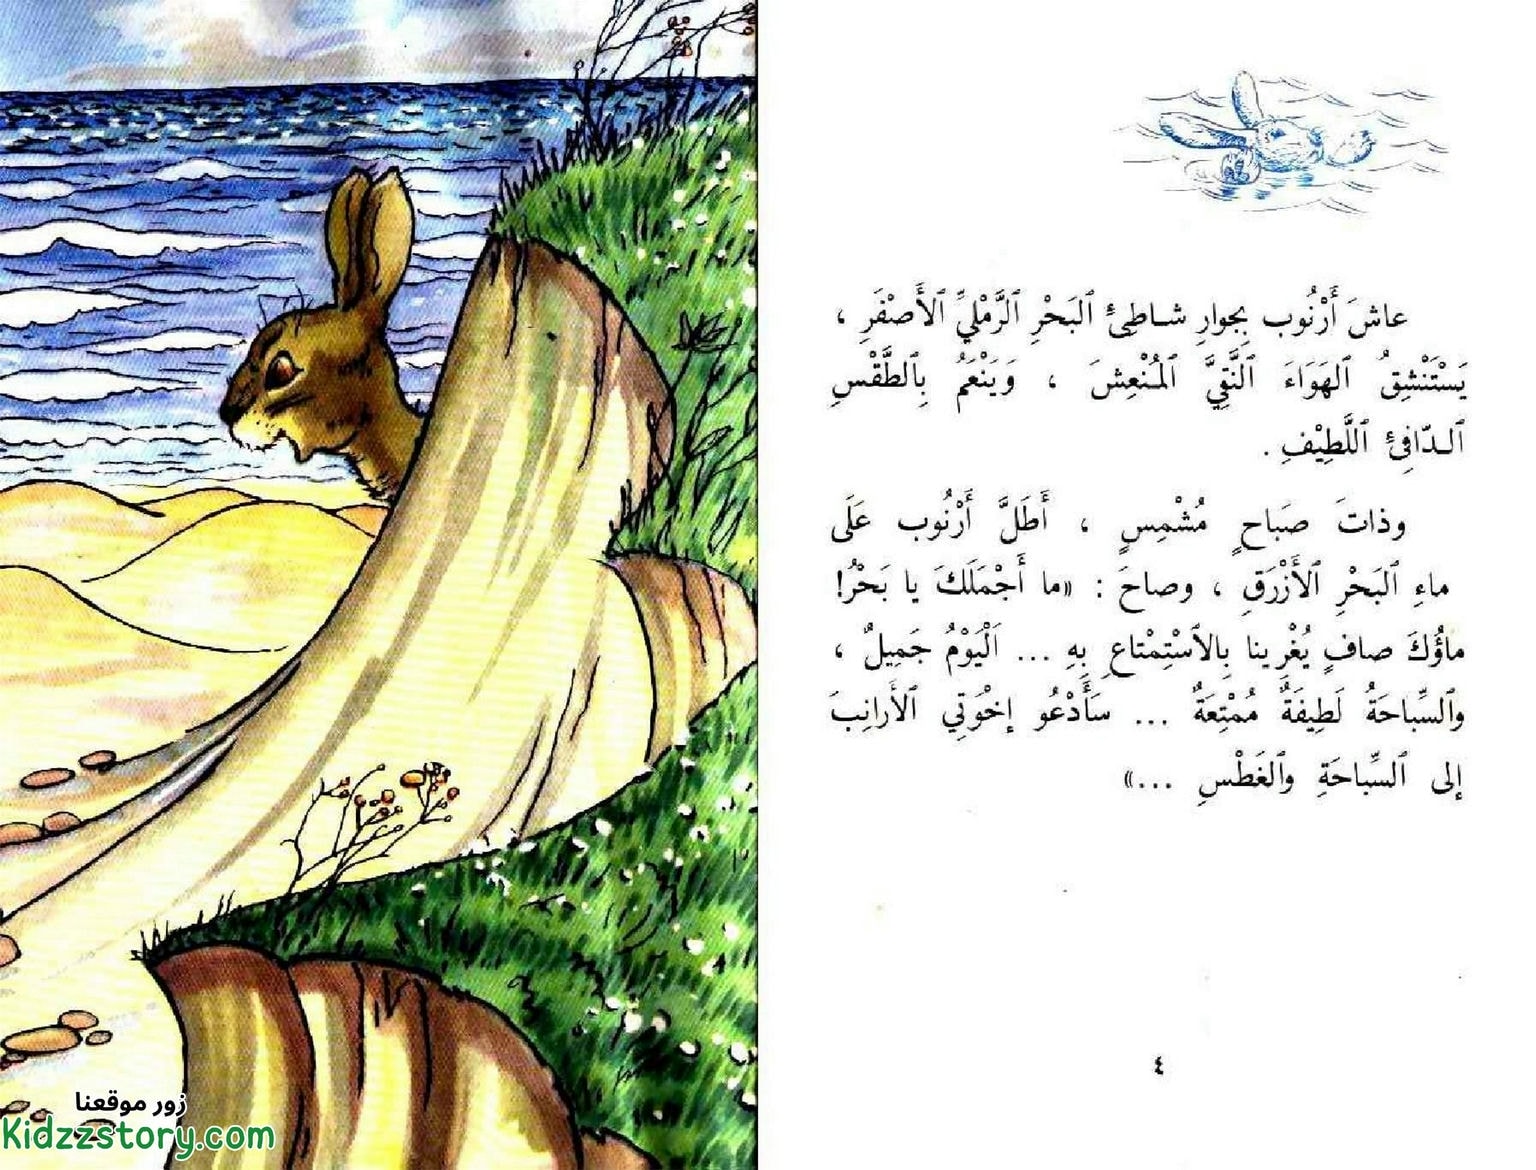 عاشَ أَرْنُوب بِجِوارِ شـاطِئِ ٱلبَحْرِ ٱلرَّمْلِيِّ ٱلأَصْفَرِ ،
يَسْتَنْشِقُ ٱلهَوَاءَ ٱلنَّقِيَّ ٱلمُنْعِشَ ، وَيَنْعَمُ بِٱلطَّقْسِ
ٱلـدّافِئِ ٱللَّطِيْفِ .
وذاتَ صَباحٍ مُشْمِسٍ ، أَطَلَّ أَرْنُوب عَلَى
ماءِ ٱلبَحْرِ ٱلأَزْرَقِ ، وصاحَ : «ما أَجْمَلَكَ يا بَحْرُ!
ماؤُكَ صافٍ يُغْرِينا بِٱلاَسْتِمْتاعِ بِهِ ... اَلْيَوْمُ جَمِيلٌ ،
وٱلسِّباحَةُ لَطِيفَةٌ مُمْتِعَةٌ ... سَأَدْعُو إخْوَتِي ٱلأَرانِبَ
إلى ٱلسِّباحَةِ وٱلغَطْسِ ...»
٤
زور موقعنا
Kidzzstory.com